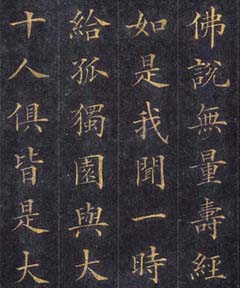 佛說無量壽經
如是我聞一時
給孤獨園與大
十人俱皆是大